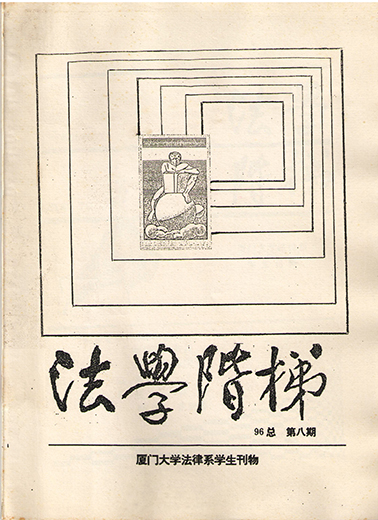 法學階梯
96总 第八期
厦门大学法律系学生刊物